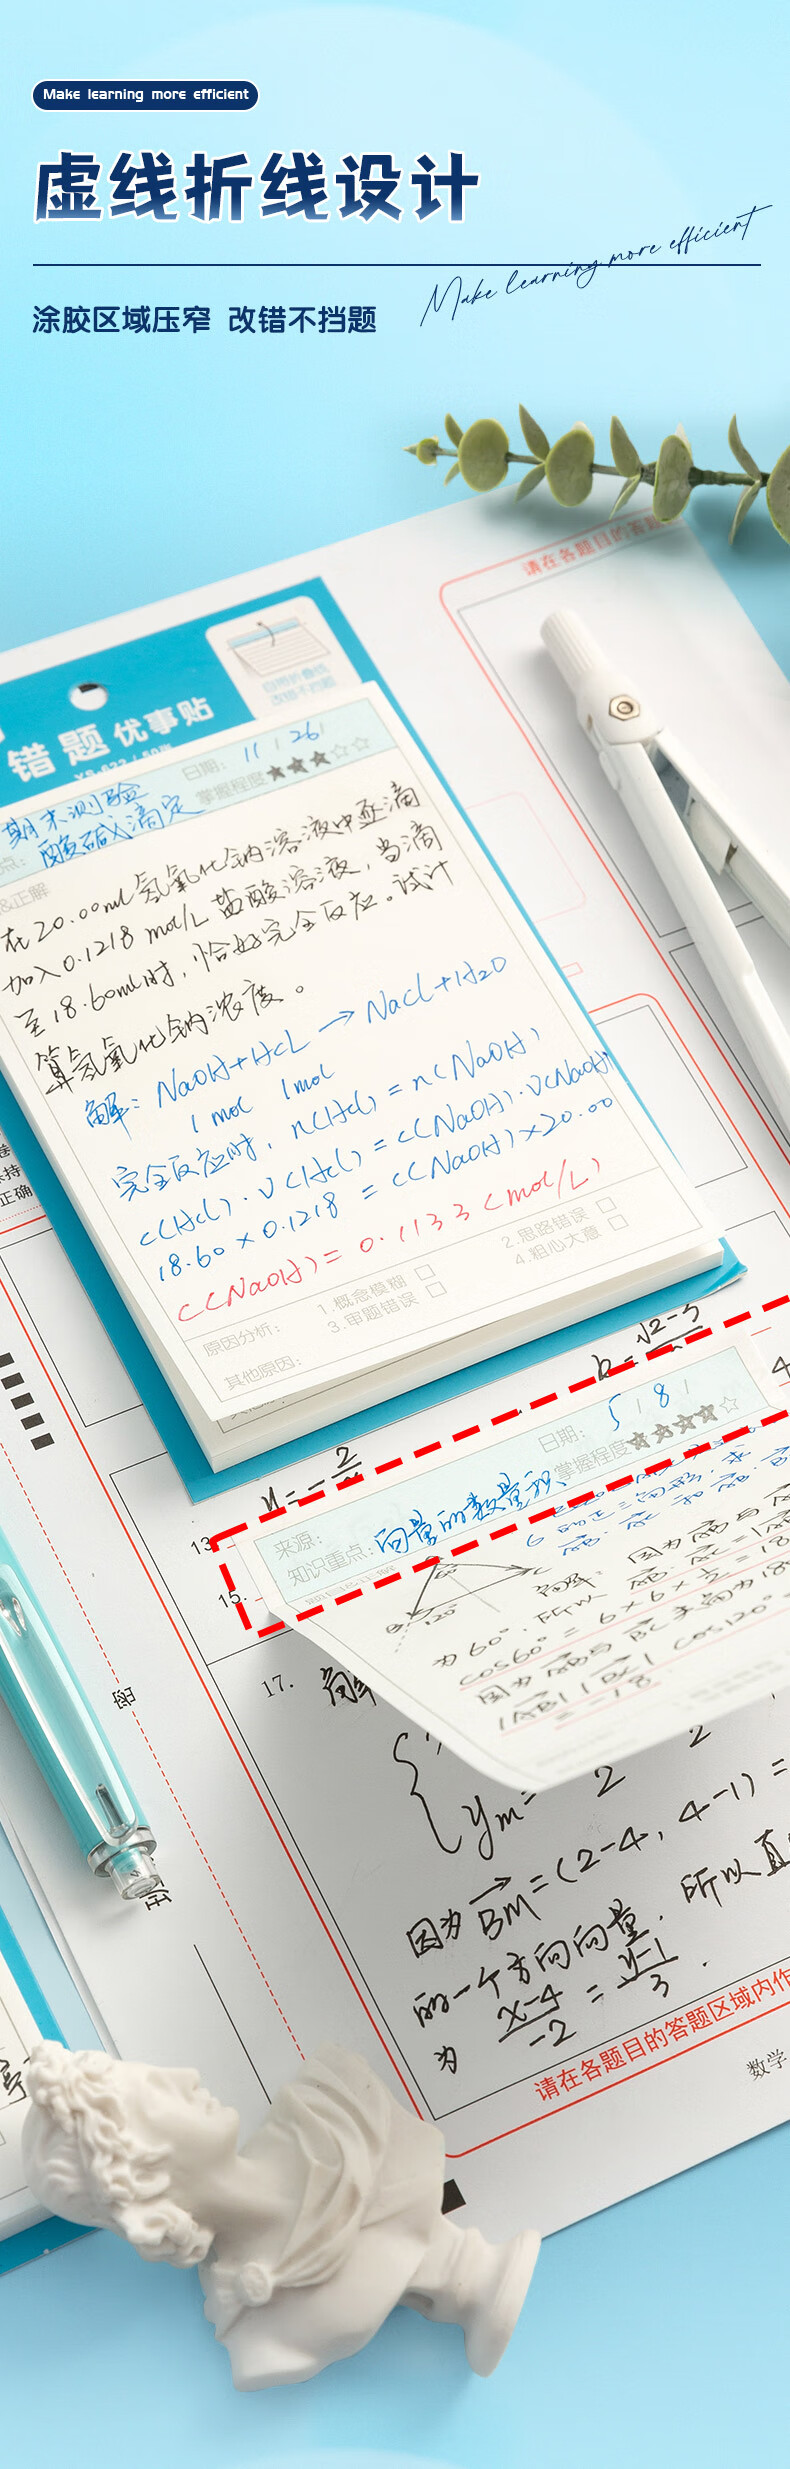 Make learning more efficient
虚线折线设计
Make learning more efficient
涂胶区域压窄 改错不挡题
请在各题目的答题
自带折叠线
改错不挡题
错题优事贴
日期： 11 / 26 /
掌握程度★★★☆☆
期末测验
点：酸碱滴定
&正解
在20.00ml氢氧化钠溶液中逐滴
加入0.1218 mol/L 盐酸溶液，当滴
至18.60ml时，恰好完全反应。试计
算氢氧化钠浓度。
解：NaOH+HCL → NaCl+H2O
1 mol 1mol
完全反应时，n(HCl) = n(NaOH)
c(HCl)·V(HCl) = c(NaOH)·V(NaOH)
18.60×0.1218 = c(NaOH)×20.00
c(NaOH) = 0.1133 (mol/L)
原因分析： 1.概念模糊 □ 2.思路错误 □
3.审题错误 □ 4.粗心大意 □
其他原因：
正确
13
15.
来源：
日期： 5 / 8 /
知识重点：向量的数量积
掌握程度★★★★☆
解：因为
为60°，所以
cos60° = 6×6×½ = 18
因为AB与BC夹角为
|AB||BC| cos120° =
= -18
17. 解
因为BM=(2-4, 4-1) =
所以直
的一个方向向量
为 x-4/-2 = y-1/3 .
请在各题目的答题区域内作
数学
密